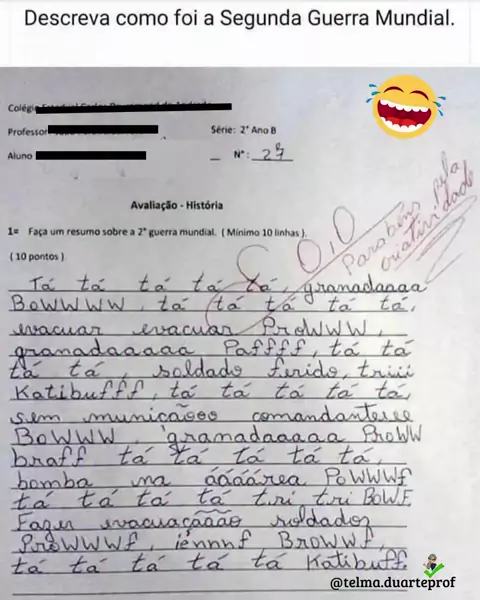 Descreva como foi a Segunda Guerra Mundial.
Colégio
Professor
Série: 2° Ano B
Aluno
Nº: 27
Avaliação - História
1= Faça um resumo sobre a 2° guerra mundial. ( Mínimo 10 linhas ).
( 10 pontos )
0,0
Parabéns pela
criatividade
Tá tá tá tá tá, granadaaaa
BOWWWW, tá tá tá tá tá,
evacuar evacuar ProWWW,
granadaaaaa Paffff, tá tá
tá tá, soldado ferido, triii
Katibufff, tá tá tá tá tá,
sem muniçãooo comandanteeee
BOWWW, granadaaaaa ProWW
braff tá tá tá tá tá,
bomba na áááárea PoWWWf
tá tá tá tá tri tri BOWF
Fazer evacuaçãããão soldados
PROWWWf, iénnnf BROWWf,
tá tá tá tá tá Katibuff
@telma.duarteprof